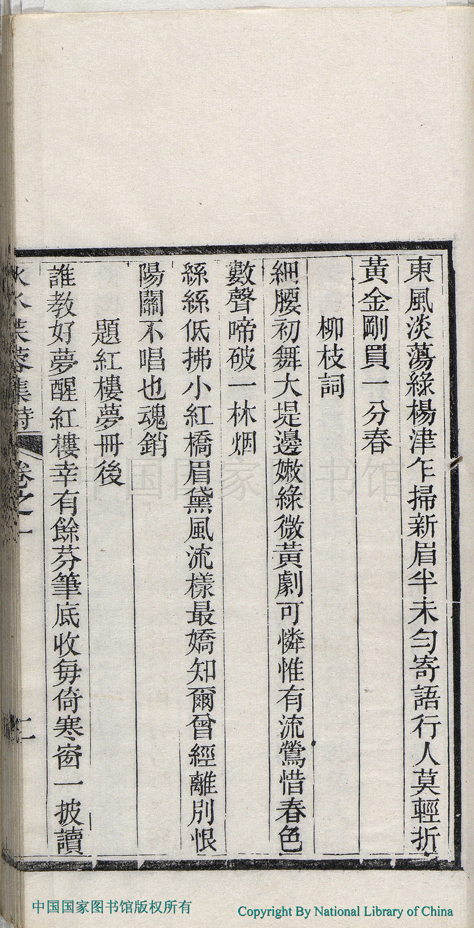 東風淡蕩綠楊津乍掃新眉半未勻寄語行人莫輕折
黃金剛買一分春
柳枝詞
細腰初舞大堤邊嫩綠微黃劇可憐惟有流鶯惜春色
數聲啼破一林烟
絲絲低拂小紅橋眉黛風流樣最嬌知爾曾經離別恨
陽關不唱也魂銷
題紅樓夢冊後
誰教好夢醒紅樓幸有餘芬筆底收每倚寒窗一披讀
芙蓉集詩 卷之一 二
中国国家图书馆
中国国家图书馆版权所有
Copyright By National Library of China